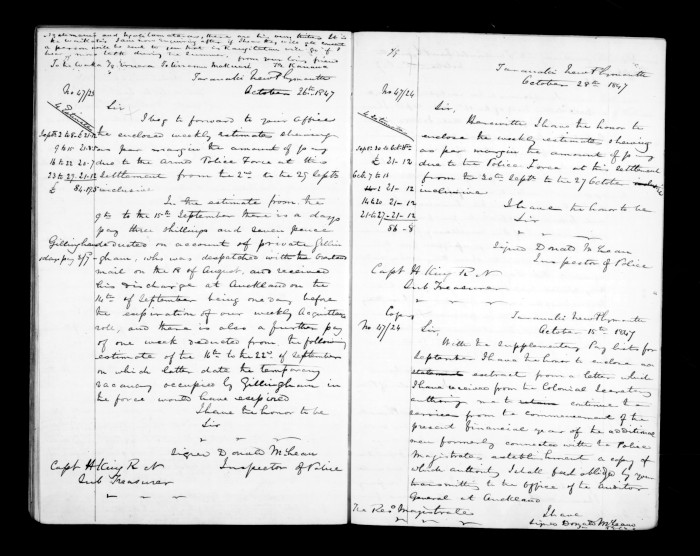 a person will be sent to you but as Rangitatau will go if
hear, now talk during the summer.
from your loving friend
Taranaki New Plymouth
October 26th 1847
No 47/23
Sir
I beg to forward to your office
the enclosed weekly estimate shewing
as per margin the amount of pay
due to the Armed Police Force at this
settlement from the 2nd to the 29 Septr
inclusive
Estimates
Septr 2 to 8 £ 21-12
9 to 15 21.8.5
16 to 22 20.7
23 to 29 21-12
£ 84.19.5
In the estimate from the
9th to the 15th September there is a days
pay three shillings and seven pence
deducted on account of private Gillin
gham, who was despatched with the Overland
mail on the 18 of August, and received
his discharge at Auckland on the
14th of September being one day before
the expiration of our weekly Acquittance
role, and there is also a further pay
of one week deducted from the following
estimate of the 16th to the 22nd of September
on which latter date the temporary
vacancy occupied by Gillingham in
the force would have expired
Gillinghams
1 days pay 3/7
I have the honor to be
Sir
Signed Donald McLean
Inspector of Police
Capt H King R N
Sub Treasurer
Taranaki New Plymouth
October 28th 1847
No 47/24
Sir,
Herewith I have the honor to
enclose the weekly estimate shewing
as per margin the amount of pay
due to the Police Force at this settlement
from the 30th Septr to the 27 October
inclusive
Estimates
£ 21-12
Octr 7 to 13
21-12
14 to 20 21-12
21 to 27 21-12
86-8
I have the honor to be
Sir
Signed Donald McLean
Inspector of Police
Capt H King R N
Sub Treasurer
Taranaki New Plymouth
October 15th 1847
Copy
No 47/24
Sir,
With the supplementary Pay lists for
September I have the honor to enclose an
statement extract from a letter which
I have received from the Colonial Secretary
authorizing me to retain continue the
services from the commencement of the
present financial year of the additional
men formerly connected with the Police
Magistrates establishment a copy of
which authority I shall feel obliged by your
transmitting to the office of the Auditor
General at Auckland
I have
Signed Donald McLean
The Resd Magistrate